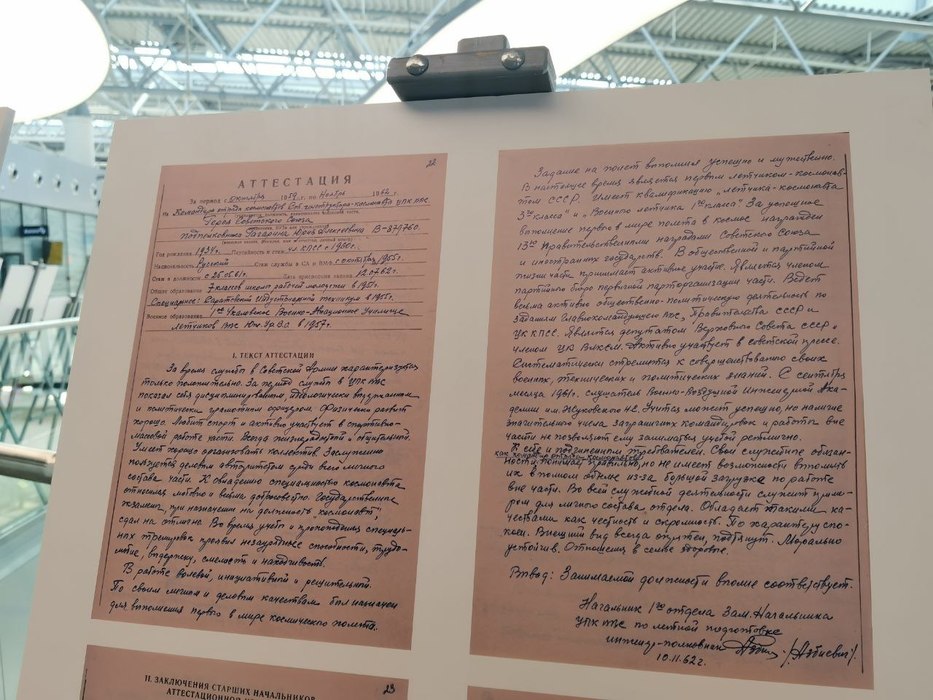 22
АТТЕСТАЦИЯ
За период с октября 1959 г. по ноябрь 1962 г.
На Командира отряда космонавтов УПК ВВС
Героя Советского Союза
подполковника Гагарина Юрия Алексеевича В-879760.
Год рождения 1934г. Партийность и стаж чл. КПСС с 1960г.
Национальность Русский Стаж службы в СА и с октября 1955г.
Стаж в должности с 25.05.61г. Дата присвоения звания 12.07.62г.
Общее образование 7 классов школы рабочей молодежи в 1951г.
Специальное: Саратовский Индустриальный техникум в 1955г.
Военное образование 1ое Чкаловское Военно-Авиационное Училище
летчиков ВВС в 1957г.
I. ТЕКСТ АТТЕСТАЦИИ
За время службы в Советской Армии характеризуется
только положительно. За период службы в УПК ВВС
показал себя дисциплинированным, идеологически выдержанным
и политически грамотным офицером. Физически развит
хорошо. Любит спорт и активно участвует в спортивно-
массовой работе части. Всегда жизнерадостный и общительный.
Умеет хорошо организовать коллектив. Заслуженно
пользуется деловым авторитетом среди всего личного
состава части. К овладению специальностью космонавта
относился любовно и весьма добросовестно. Государственные
экзамены, при назначении на должность "космонавт"
сдал на отлично. Во время учебы и прохождения специаль-
ных тренировок проявил незаурядные способности, трудо-
любие, выдержку, смелость и находчивость.
В работе волевой, инициативный и решительный.
По своим личным и деловым качествам был назначен
для выполнения первого в мире космического полета.
Задание на полет выполнил успешно и мужественно.
В настоящее время является первым летчиком-космонав-
том СССР. Имеет квалификацию "летчика-космонавта
3го класса" и "Военного летчика 1го класса". За успешное
выполнение первого в мире полета в космос награжден
13ю Правительственными наградами Советского Союза
и иностранных государств. В общественной и партийной
жизни части принимает активное участие. Является членом
партийного бюро первичной парторганизации части. Ведет
весьма активную общественно-политическую деятельность по
заданиям Главнокомандующего ВВС, Правительства СССР и
ЦК КПСС. Является депутатом Верховного Совета СССР и
членом ЦК ВЛКСМ. Активно участвует в советской прессе.
Систематически стремится к совершенствованию своих
военных, технических и политических знаний. С сентября
месяца 1961г. слушатель Военно-Воздушной Инженерной Ака-
демии им. Жуковского Н.Е. Учиться может успешно, но наличие
значительного числа заграничных командировок и работы вне
части не позволяет ему заниматься учебой ритмично.
К себе и подчиненным требователен. Свои служебные обязан-
как командир отряда космонавтов
ности понимает правильно, но не имеет возможности выполнять
их в полном объеме из-за большой загрузки по работе
вне части. Во всей служебной деятельности служит приме-
ром для личного состава отдела. Обладает такими ка-
чествами как честность и скромность. По характеру спо-
коен. Внешний вид всегда опрятен, подтянут. Морально
устойчив. Отношения в семье здоровые.
Вывод: Занимаемой должности вполне соответствует.
Начальник 1го отдела Зам. Начальника
УПК ВВС по летной подготовке
инженер-полковник /Азбиевич/.
10.11.62г.
II. ЗАКЛЮЧЕНИЯ СТАРШИХ НАЧАЛЬНИКОВ
23